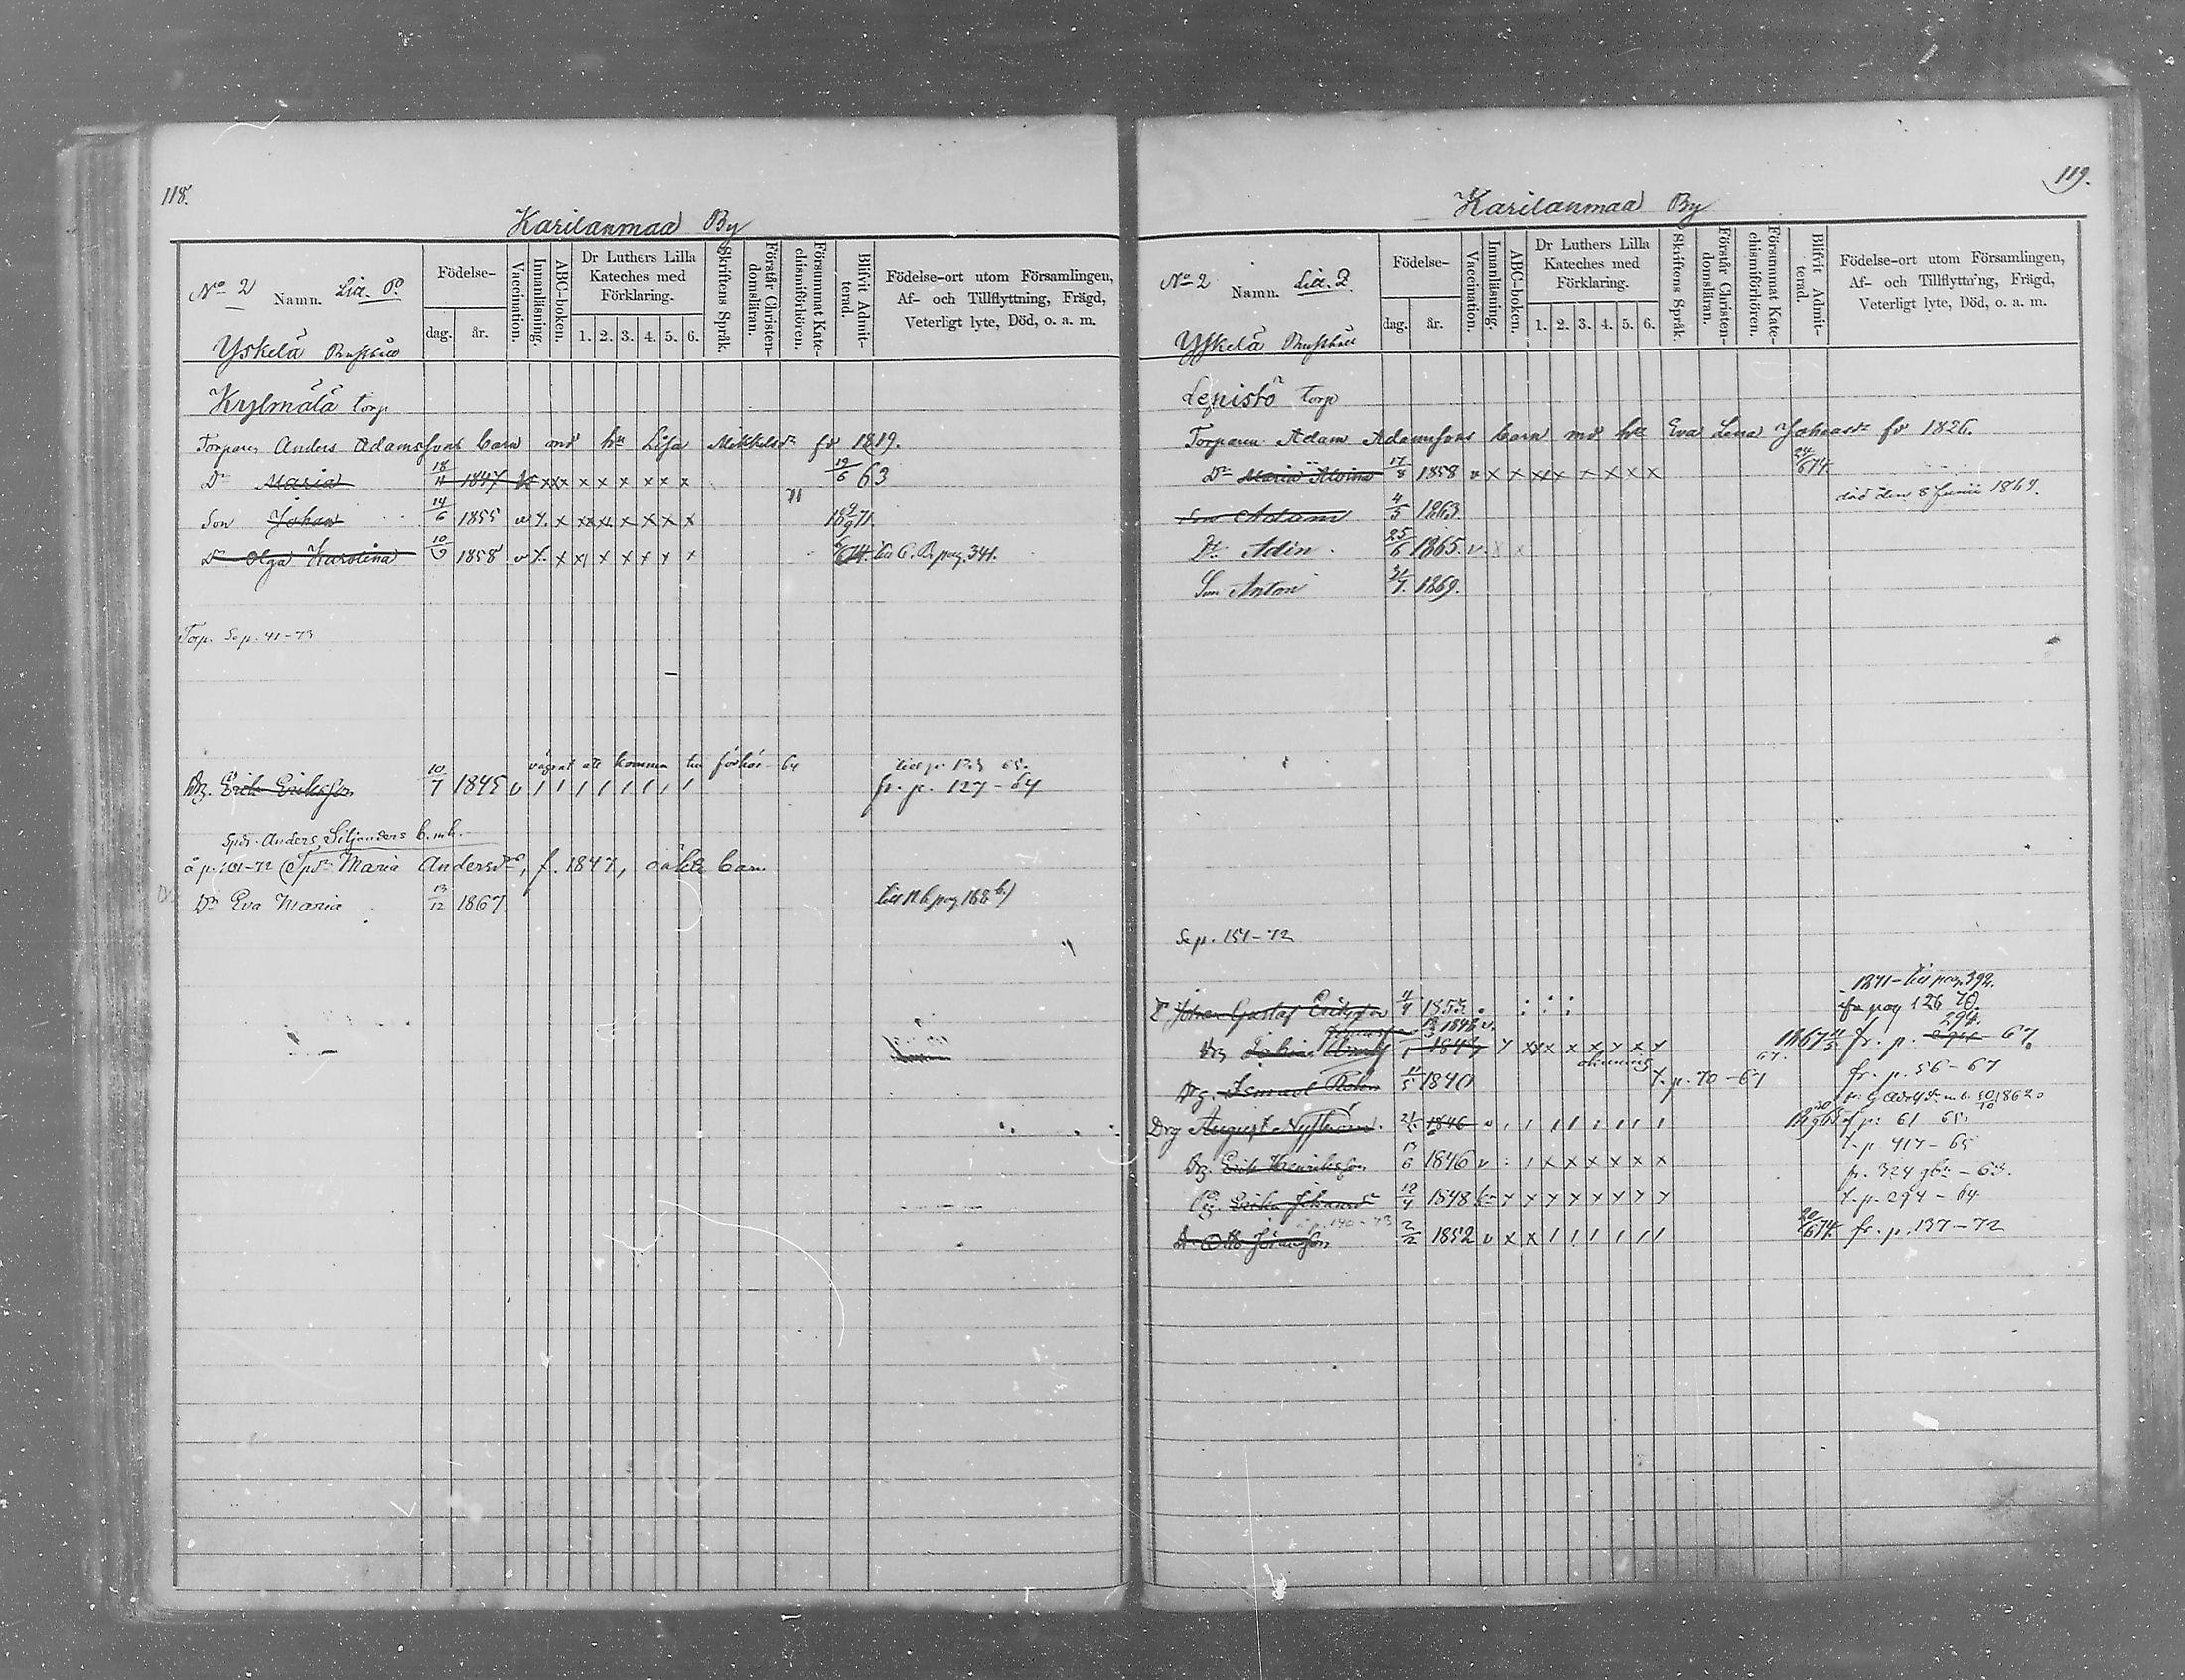 118.
Karilanmaa By
No 2 Namn. Lit. P.
Födelse-
dag. år.
Vaccination.
Innanläsning.
ABC-boken.
Dr Luthers Lilla Kateches med Förklaring.
1. 2. 3. 4. 5. 6.
Skriftens Språk.
Förstår Christendomsläran.
Försummat Katechismiförhören.
Blifvit Admitterad.
Födelse-ort utom Församlingen,
Af- och Tillflyttning, Frägd,
Veterligt lyte, Död, o. a. m.
Yskelä Rusthåll
Kylmälä torp
Torparen Anders Adamssons barn med hu Lisa Mikkelsdr fö 1819.
Dr Maria 18/11 1847 x x x x x x x x 19/6 63
71
Son Johan 14/6 1855 v x x x x x x x 18 2/9 71
Dr Olga Karolina 10/9 1858 v x x x x x x x till C. B. pag. 341.
Torp. Se p. 41-73
vägrat att komma till förhör - 64
Drg. Erik Eriksson 10/7 1845 v / / / / / / / / fr. p. 127-64
Spis. Anders Siljanders b. m h.
å p. 101-72 (Spdr Maria Andersdr, f. 1847, oäkta barn
Dr Eva Maria 13/12 1867 till N b pag 168 b.)
119.
Karilanmaa By
No 2 Namn. Lit. Q
Födelse-
dag. år.
Vaccination.
Innanläsning.
ABC-boken.
Dr Luthers Lilla Kateches med Förklaring.
1. 2. 3. 4. 5. 6.
Skriftens Språk.
Förstår Christendomsläran.
Försummat Katechismiförhören.
Blifvit Admitterad.
Födelse-ort utom Församlingen,
Af- och Tillflyttning, Frägd,
Veterligt lyte, Död, o. a. m.
Yskelä Rusthåll
Lepistö torp
Torparen Adam Adamssons barn med hu Eva Lena Johansdr fö 1826.
Dr Maria Alvina 17/8 1858 v x x x x x x x x 24/6 74
Son Adam 4/5 1863 död den 8 Junii 1867.
Dr Adin 25/6 1865. v x x
Son Anton 31/7. 1869.
Se p. 154-72
1871-till pag 392.
Johan Gustaf Eriksson 4/4 1855 fr pag 126 70
294.
1847 x x x x x x x x 1867 fr. p. 67
Drg. 11/5 1840 t. p. 70-67 fr. p. 56-67
Drg August Nyström 1846 v / / / / / / / / f. p: 61 65.
t. p 417-65
Drg. Erik Henriksson 17/6 1846 v : / x x x x x x fr. 324 - 63.
Pig. Erika Johansdr 19/4 1848 x x x x x x x x t. p. 294-64
å p. 140-73
Dr. Otto Johansson 2/2 1852 v x x / / / / / / 20/6 74. fr. p. 137-72